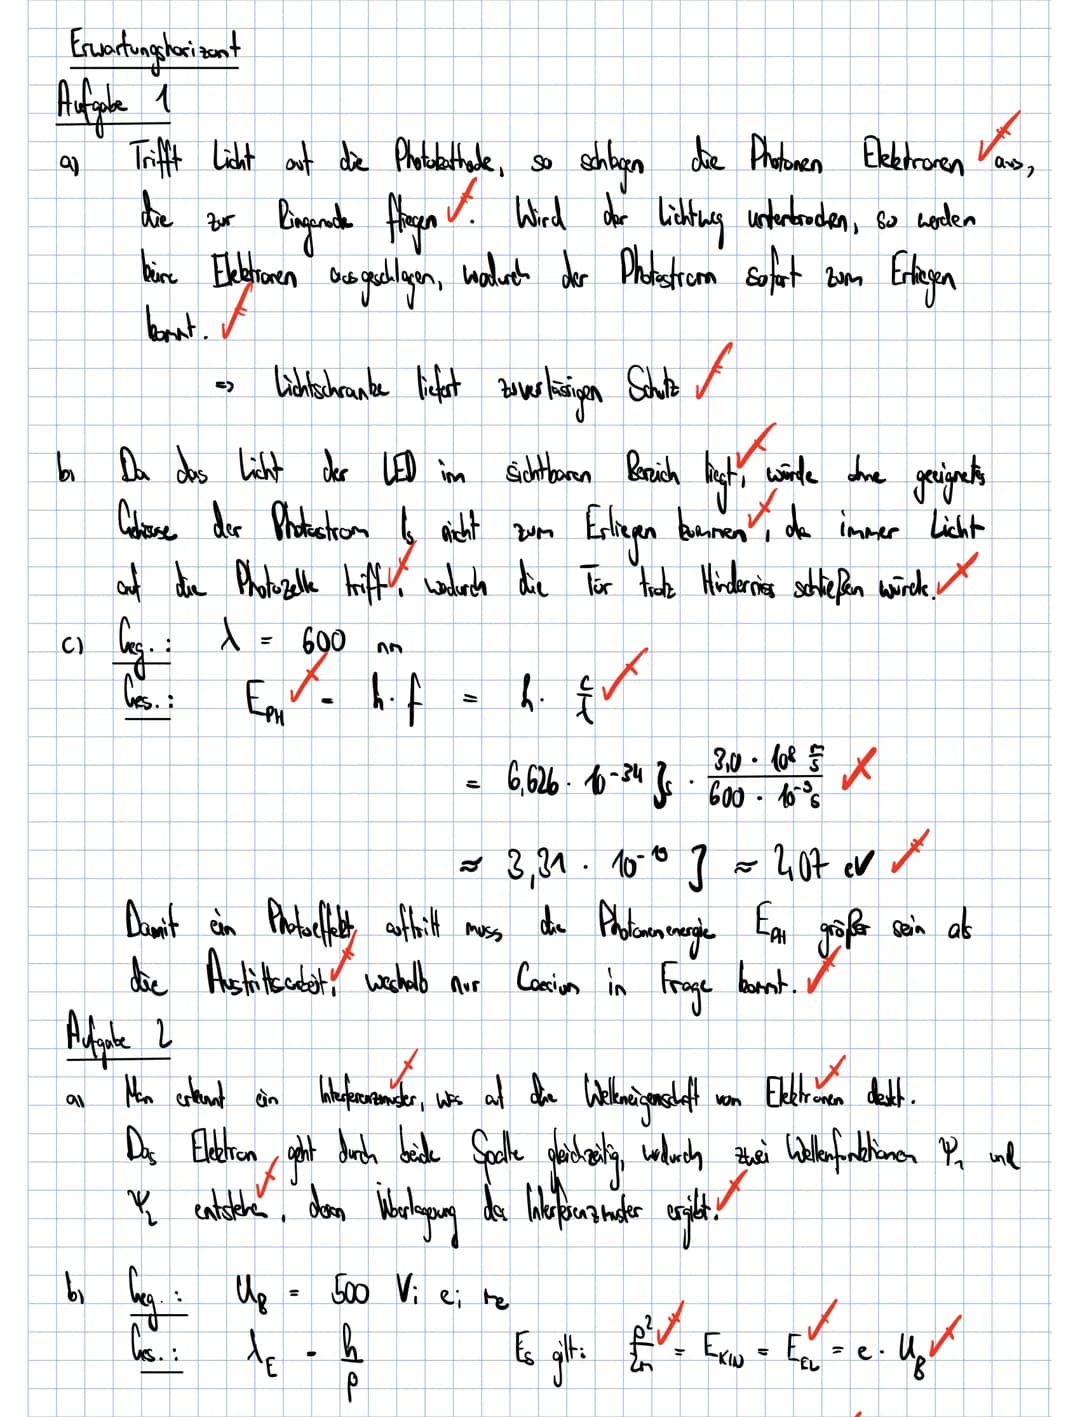 Erwartungshorizont
Aufgabe 1
a) Trifft Licht auf die Photokathode, so schlagen die Photonen Elektronen aus,
die zur Ringanode fliegen. Wird der Lichtweg unterbrochen, so werden
keine Elektronen ausgeschlagen, wodurch der Photostrom sofort zum Erliegen
kommt.
=> Lichtschranke liefert zuverlässigen Schutz
b) Da das Licht der LED im sichtbaren Bereich liegt, würde ohne geeignetes
Gehäuse der Photostrom Is nicht zum Erliegen kommen, da immer Licht
auf die Photozelle trifft, wodurch die Tür trotz Hindernis schließen würde.
c) Geg.: λ = 600 nm
Ges.: E_PH = h · f = h · c/λ
= 6,626 · 10^-34 Js · (3,0 · 10^8 m/s)/(600 · 10^-9 s)
≈ 3,31 · 10^-19 J ≈ 2,07 eV
Damit ein Photoeffekt auftritt muss die Photonenenergie E_PH größer sein als
die Austrittsarbeit, weshalb nur Caesium in Frage kommt.
Aufgabe 2
a) Man erkennt ein Interferenzmuster, was auf die Welleneigenschaft von Elektronen deutet.
Das Elektron geht durch beide Spalte gleichzeitig, wodurch zwei Wellenfunktionen Ψ_1 und
Ψ_2 entstehen, deren Überlagerung das Interferenzmuster ergibt.
b) Geg.: U_B = 500 V; e; m_e
Ges.: λ_E = h/p Es gilt: p²/2m = E_KIN = E_EL = e · U_B